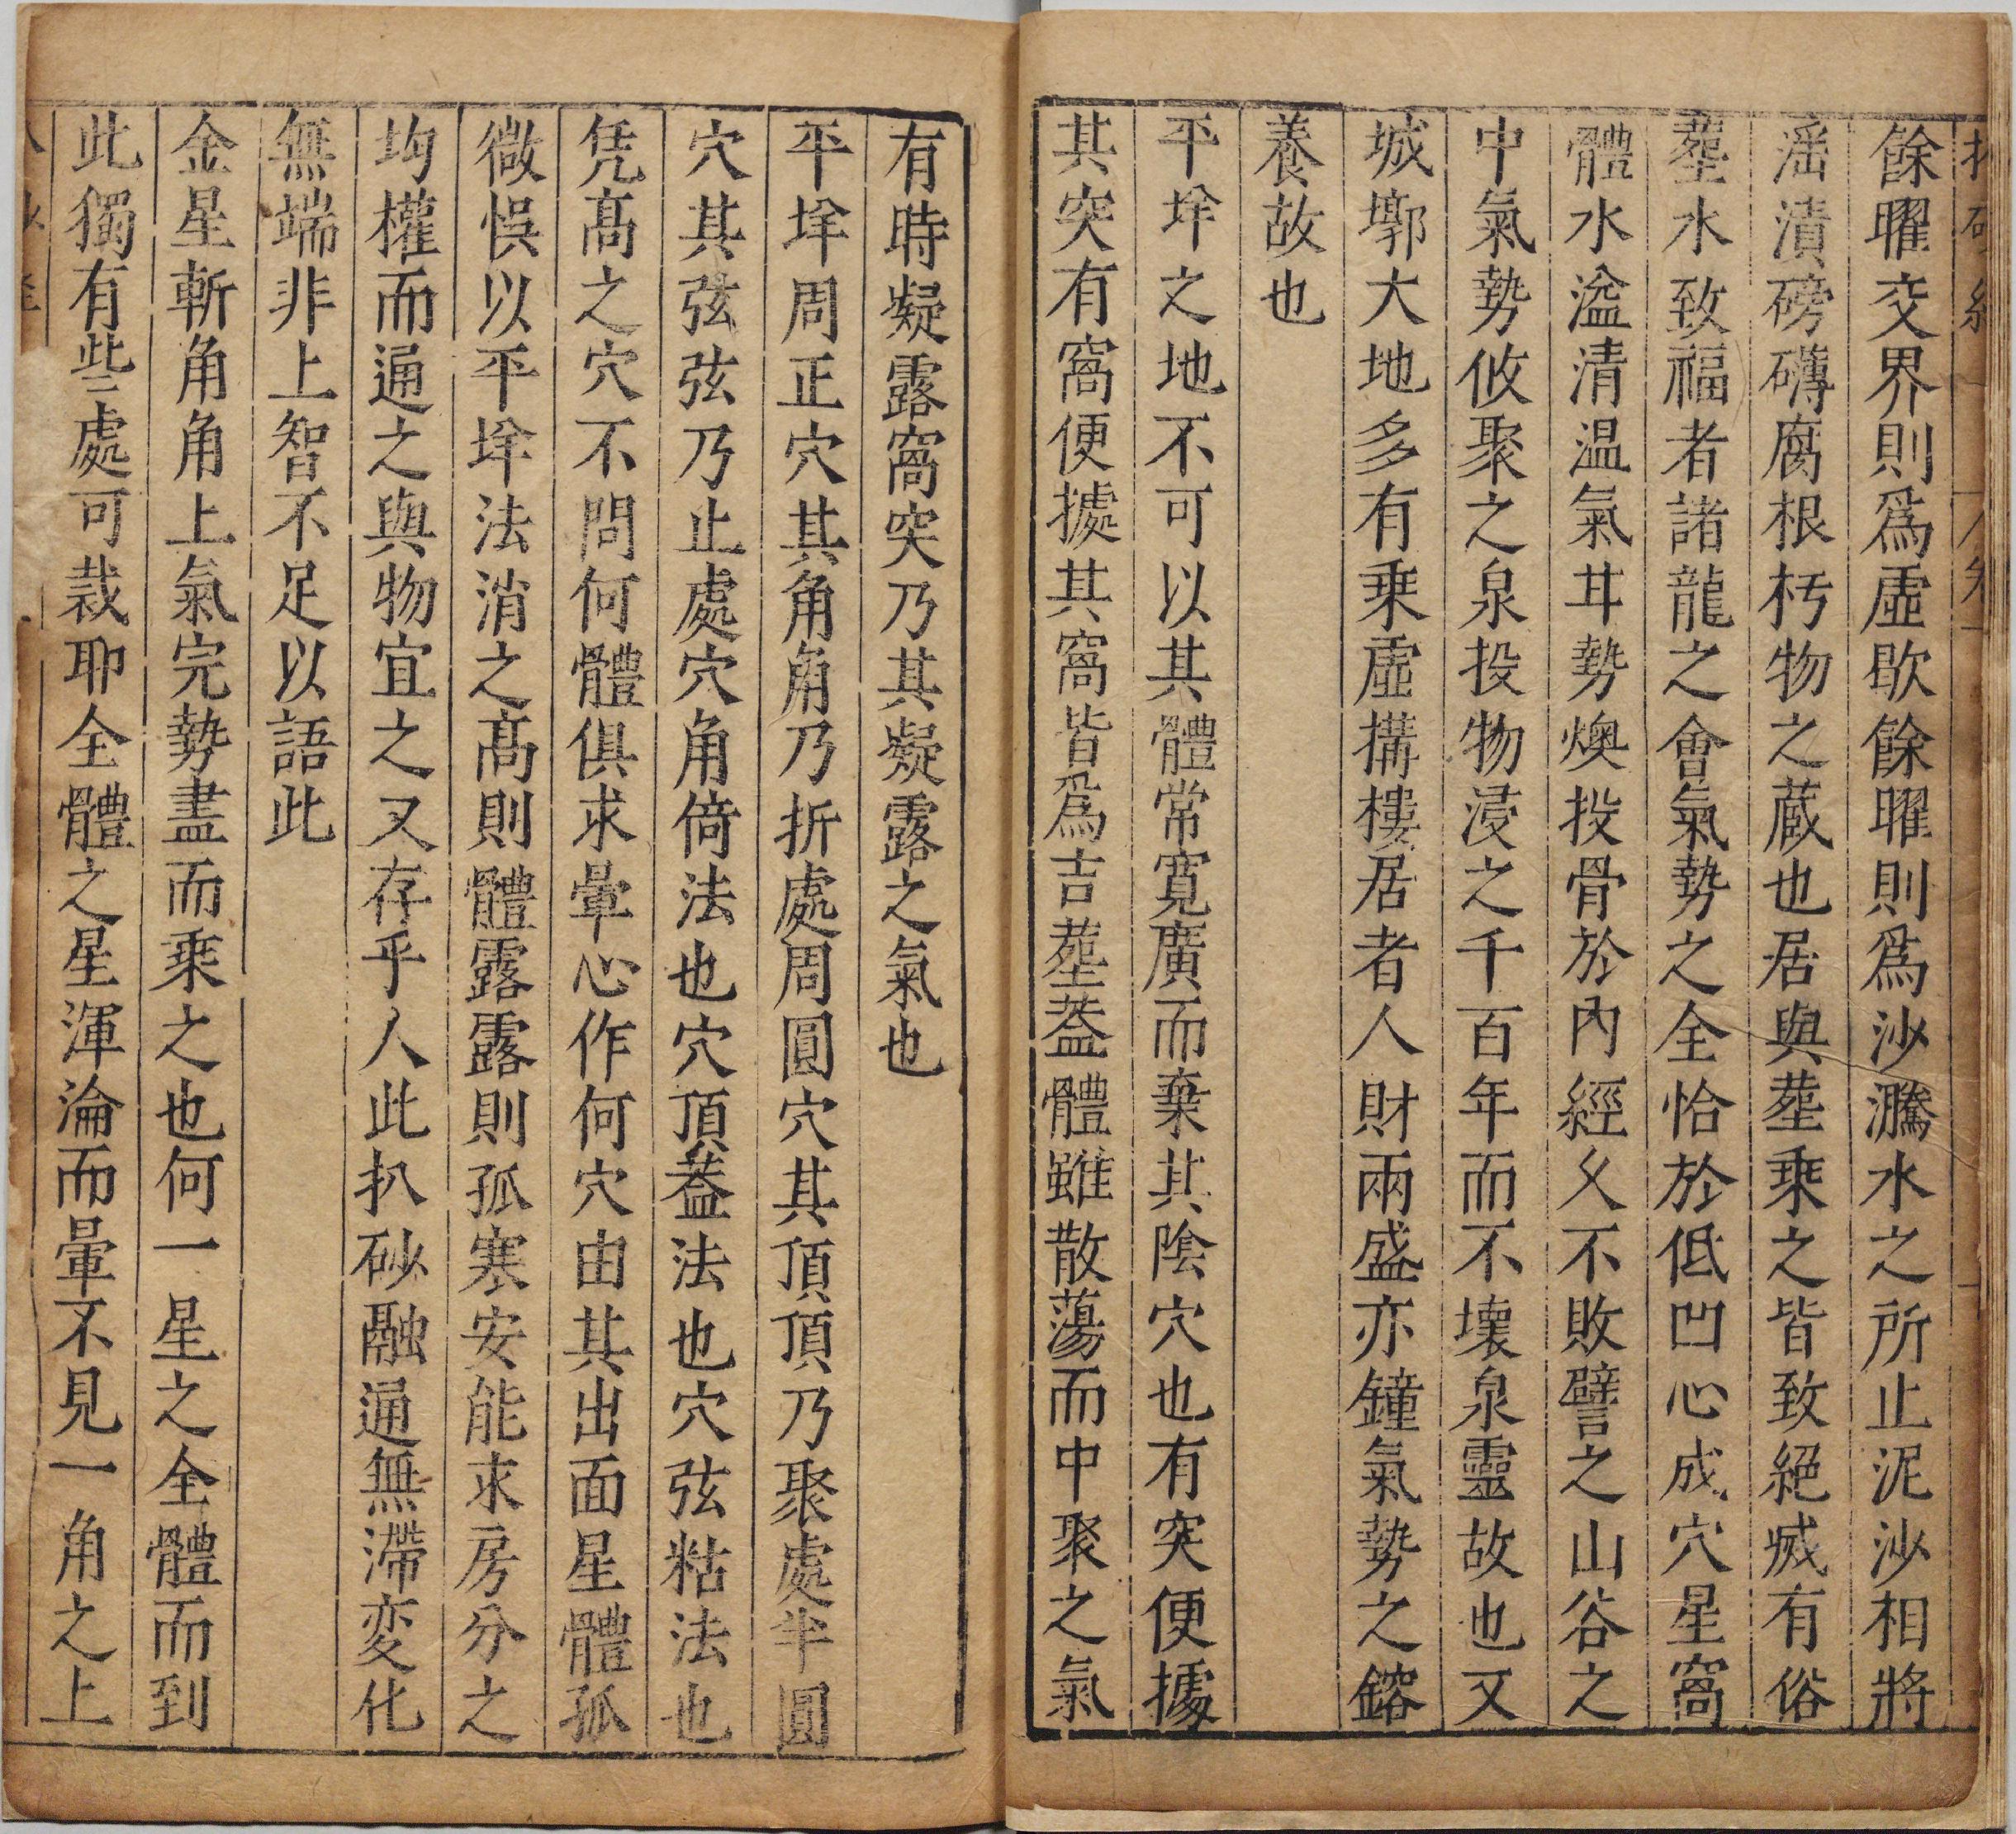 餘曜交界則爲虛歇餘曜則爲沙灘水之所止泥沙相將
滛漬磅礴腐根朽物之蔵也居與塟乗之皆致絕㓕有俗
塟水致福者諸龍之會氣勢之全恰於低凹心成穴星窩
體水溢清温氣耳勢煥投骨於內經乆不敗譬之山谷之
中氣勢攸聚之泉投物浸之千百年而不壞泉靈故也又
城墎大地多有乗虛搆樓居者人財兩盛亦鐘氣勢之鎔
養故也
平垟之地不可以其體常寬廣而棄其陰穴也有突便據
其突有窩便據其窩皆爲吉塟葢體雖散蕩而中聚之氣
有時凝露窩突乃其凝露之氣也
平垟周正穴其角角乃折處周圓穴其頂頂乃聚處半圓
穴其弦弦乃止處穴角倚法也穴頂葢法也穴弦粘法也
凭髙之穴不問何體俱求暈心作何穴由其出面星體孤
微悞以平垟法消之髙則體露露則孤寒安能求房分之
均權而通之與物宜之又存乎人此扒砂融通無滯変化
無端非上智不足以語此
金星斬角角上氣完勢盡而乗之也何一星之全體而到
此獨有些處可裁耶全體之星渾淪而暈不見一角之上